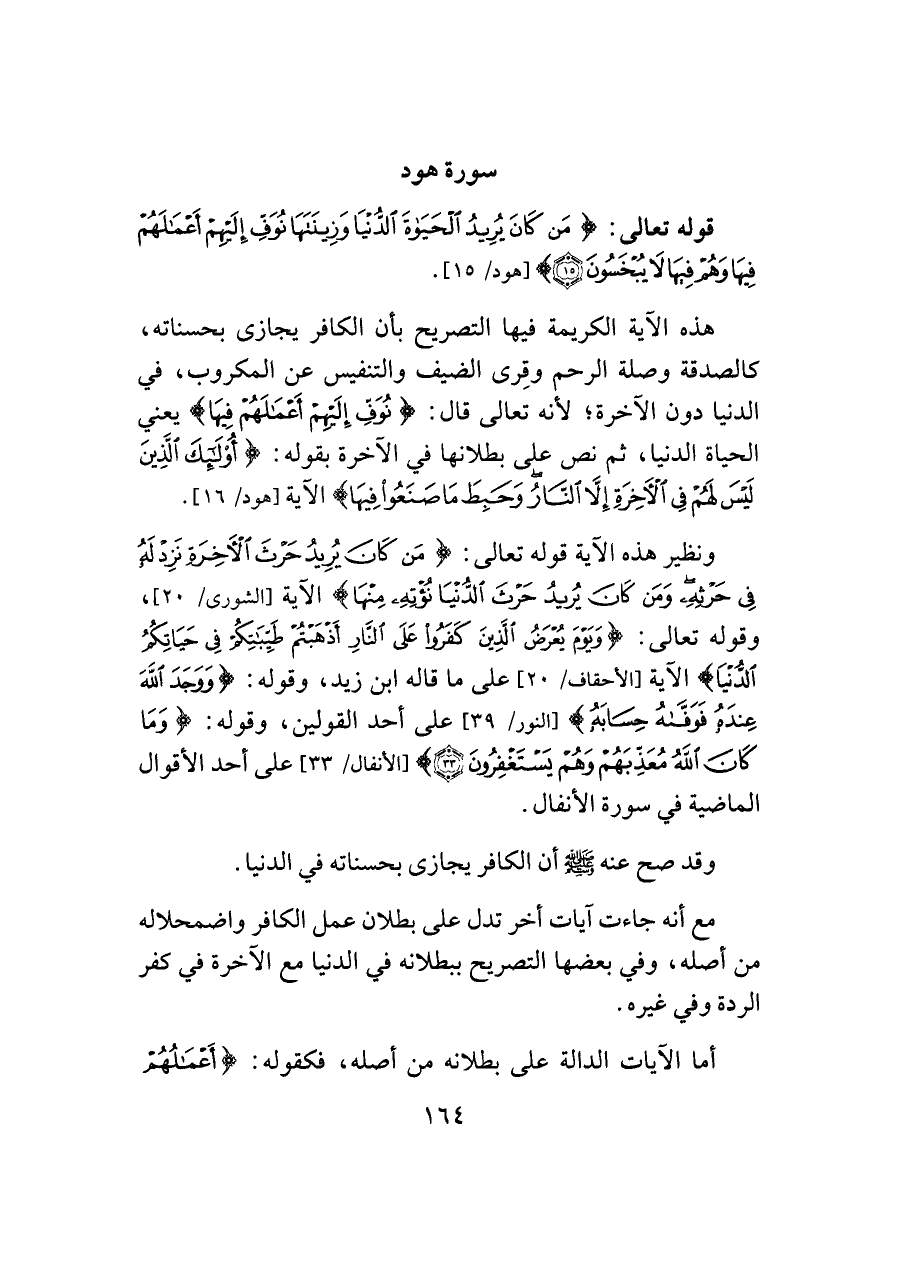 سورة هود
قوله تعالى: ﴿ مَن كَانَ يُرِيدُ ٱلْحَيَوٰةَ ٱلدُّنْيَا وَزِينَتَهَا نُوَفِّ إِلَيْهِمْ أَعْمَـٰلَهُمْ
فِيهَا وَهُمْ فِيهَا لَا يُبْخَسُونَ ١٥ ﴾ [هود/ ١٥].
هذه الآية الكريمة فيها التصريح بأن الكافر يجازى بحسناته،
كالصدقة وصلة الرحم وقِرى الضيف والتنفيس عن المكروب، في
الدنيا دون الآخرة؛ لأنه تعالى قال: ﴿ نُوَفِّ إِلَيْهِمْ أَعْمَـٰلَهُمْ فِيهَا ﴾ يعني
الحياة الدنيا، ثم نص على بطلانها في الآخرة بقوله: ﴿ أُوْلَـٰٓئِكَ ٱلَّذِينَ
لَيْسَ لَهُمْ فِى ٱلْأَخِرَةِ إِلَّا ٱلنَّارُ ۖ وَحَبِطَ مَا صَنَعُوا۟ فِيهَا ﴾ الآية [هود/ ١٦].
ونظير هذه الآية قوله تعالى: ﴿ مَن كَانَ يُرِيدُ حَرْثَ ٱلْأَخِرَةِ نَزِدْ لَهُۥ
فِى حَرْثِهِۦ ۖ وَمَن كَانَ يُرِيدُ حَرْثَ ٱلدُّنْيَا نُؤْتِهِۦ مِنْهَا ﴾ الآية [الشورى/ ٢٠]،
وقوله تعالى: ﴿ وَيَوْمَ يُعْرَضُ ٱلَّذِينَ كَفَرُوا۟ عَلَى ٱلنَّارِ أَذْهَبْتُمْ طَيِّبَـٰتِكُمْ فِى حَيَاتِكُمُ
ٱلدُّنْيَا ﴾ الآية [الأحقاف/ ٢٠] على ما قاله ابن زيد، وقوله: ﴿ وَوَجَدَ ٱللَّهَ
عِندَهُۥ فَوَفَّـٰهُ حِسَابَهُۥ ﴾ [النور/ ٣٩] على أحد القولين، وقوله: ﴿ وَمَا
كَانَ ٱللَّهُ مُعَذِّبَهُمْ وَهُمْ يَسْتَغْفِرُونَ ٣٣ ﴾ [الأنفال/ ٣٣] على أحد الأقوال
الماضية في سورة الأنفال.
وقد صح عنه ﷺ أن الكافر يجازى بحسناته في الدنيا.
مع أنه جاءت آيات أخر تدل على بطلان عمل الكافر واضمحلاله
من أصله، وفي بعضها التصريح ببطلانه في الدنيا مع الآخرة في كفر
الردة وفي غيره.
أما الآيات الدالة على بطلانه من أصله، فكقوله: ﴿ أَعْمَـٰلُهُمْ
١٦٤